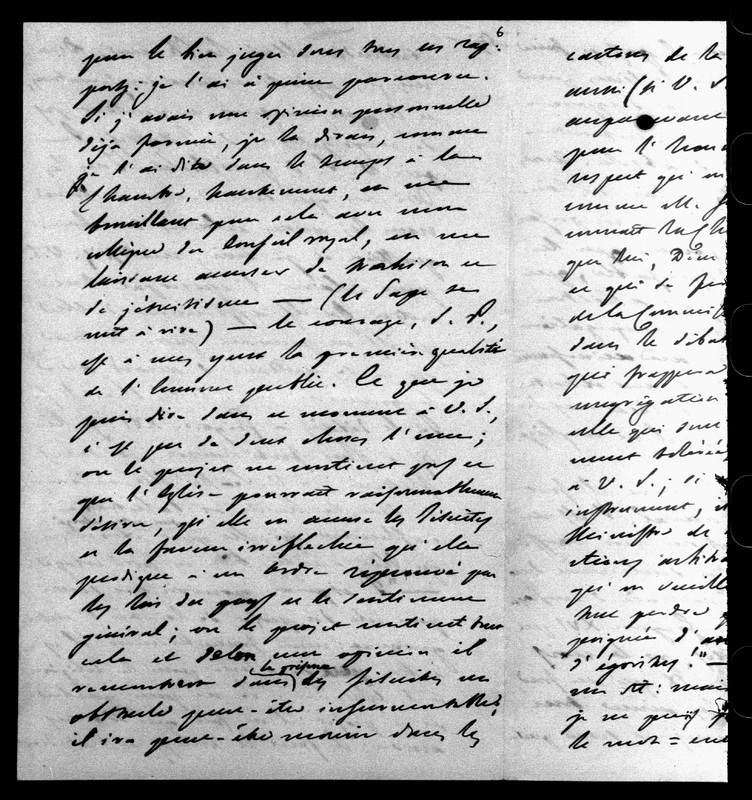 6
pour le bien juger dans tous ses rap-
ports: je l'ai à peine parcouru.
Si j'avais une opinion personnelle
déjà formée, je la dirais, comme
je l'ai dite dans le temps à la
Chambre, hautement, en me
brouillant pour cela avec mon
collègue du Conseil royal, en me
laissant accuser de trahison et
de jésuitisme — (le Pape se
mit à rire) — le courage, S. P.,
est à mes yeux la première qualité
de l'homme public. Ce que je
puis dire dans ce moment à V. S.,
c'est que de deux choses l'une;
ou le projet ne contient pas ce
que l'Eglise pourrait raisonnablement
désirer, qu'elle en accuse les Jésuites
et la faveur irréfléchie qu'elle
prodigue à un ordre réprouvé par
les lois du pays et le sentiment
général; ou le projet contient tout
cela et selon mon opinion il
rencontrera dans la présence des Jésuites un
obstacle peut-être insurmontable;
il ira peut-être mourir dans les
cartons de la
aussi (si V. S.
auparavant
pour l'hom
respect qui m
comme M.
connaît la Ch
que lui, Dieu
ce qui se
de la Commiss
dans le débat
qui frappera
congrégation
elle qui sont
ment tolérée
à V. S.; si
instrument,
Ministre de
qui en veuille
tout perdre
poignée d'
d'égoïstes!" —
me dit: mais
je ne puis
le mot = en